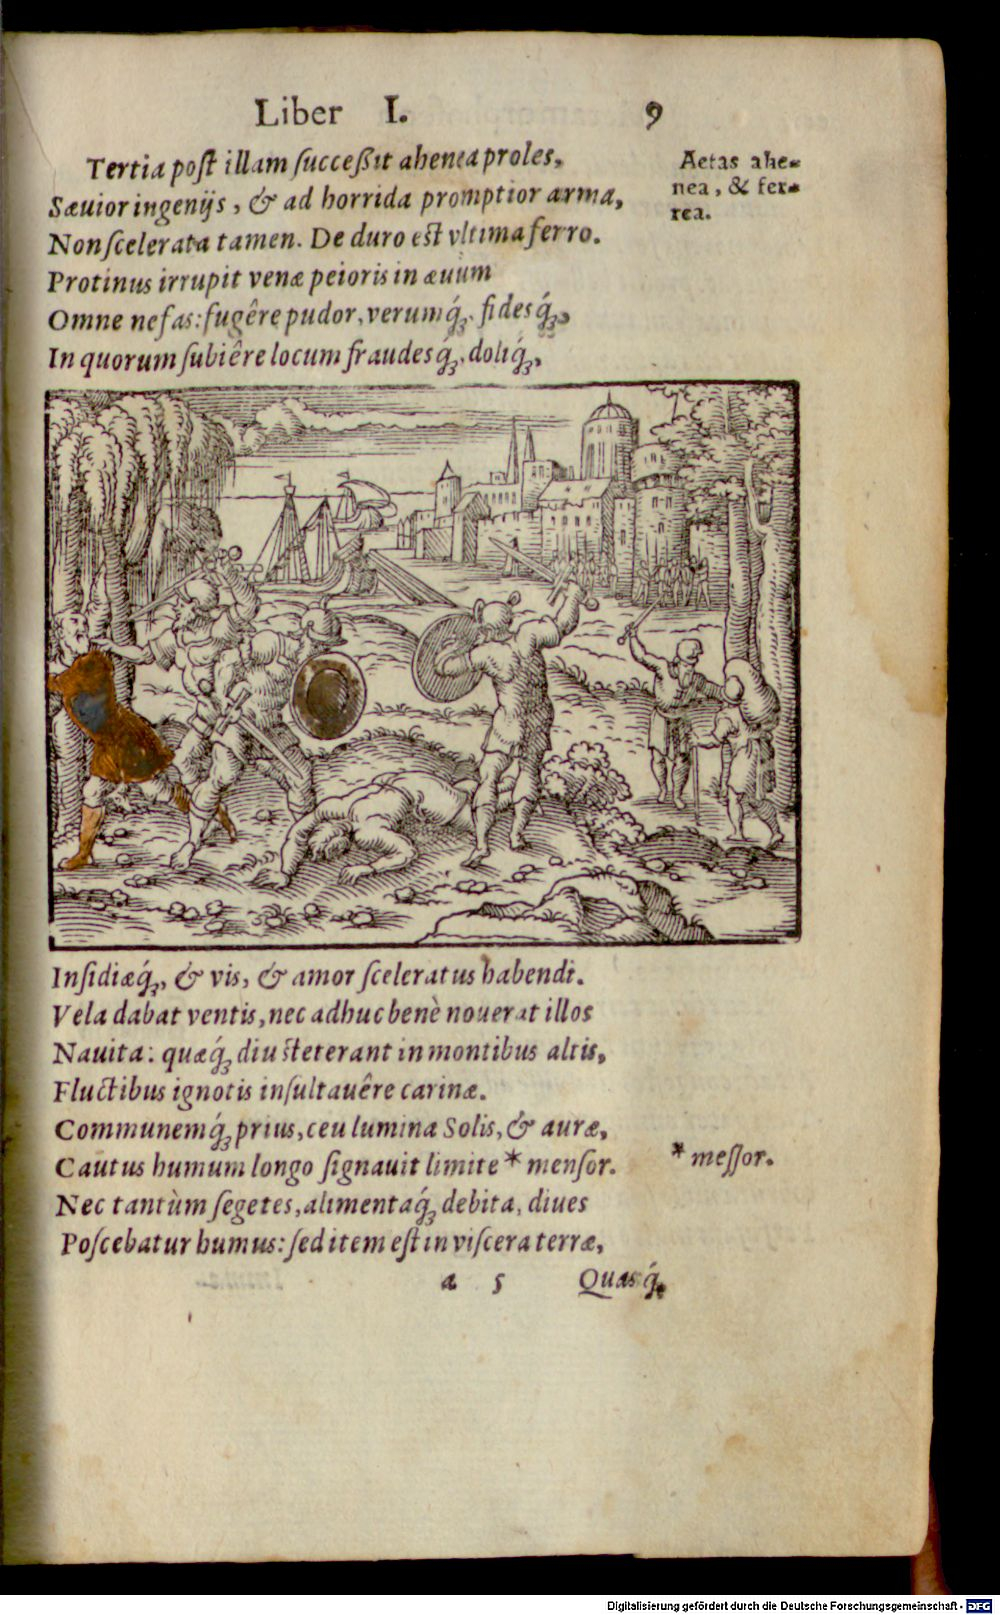 Liber I. 9
Tertia poſt illam ſucceßit ahenea proles,
Sæuior ingenijs, & ad horrida promptior arma,
Non ſcelerata tamen. De duro est vltima ferro.
Protinus irrupit venæ peioris in æuum
Omne nefas: fugêre pudor, verumq́;, fidesq́;,
In quorum ſubiêre locum fraudesq́;, doliq́;,
Aetas ahe-
nea, & fer-
rea.
Inſidiæq́;, & vis, & amor ſceleratus habendi.
Vela dabat ventis, nec adhuc benè nouerat illos
Nauita: quæq́; diu steterant in montibus altis,
Fluctibus ignotis inſultauêre carinæ.
Communemq́; prius, ceu lumina Solis, & auræ,
Cautus humum longo ſignauit limite * menſor.
* meſſor.
Nec tantùm ſegetes, alimentaq́; debita, diues
Poſcebatur humus: ſed item eſt in viſcera terræ,
a 5 Quasq́;
Digitalisierung gefördert durch die Deutsche Forschungsgemeinschaft - DFG